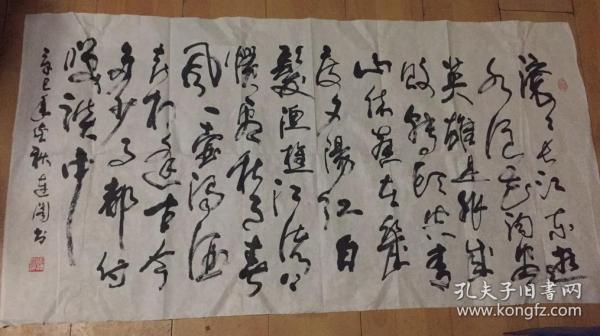 滚々长江东逝
水浪花淘尽
英雄是非成
敗轉頭空青
山依舊在幾
度夕陽紅白
髮漁樵江渚上
慣看秋月春
風一壺濁酒
喜相逢古今
多少事都付
笑談中
辛巳年 秋 书
孔夫子旧书网
www.kongfz.com